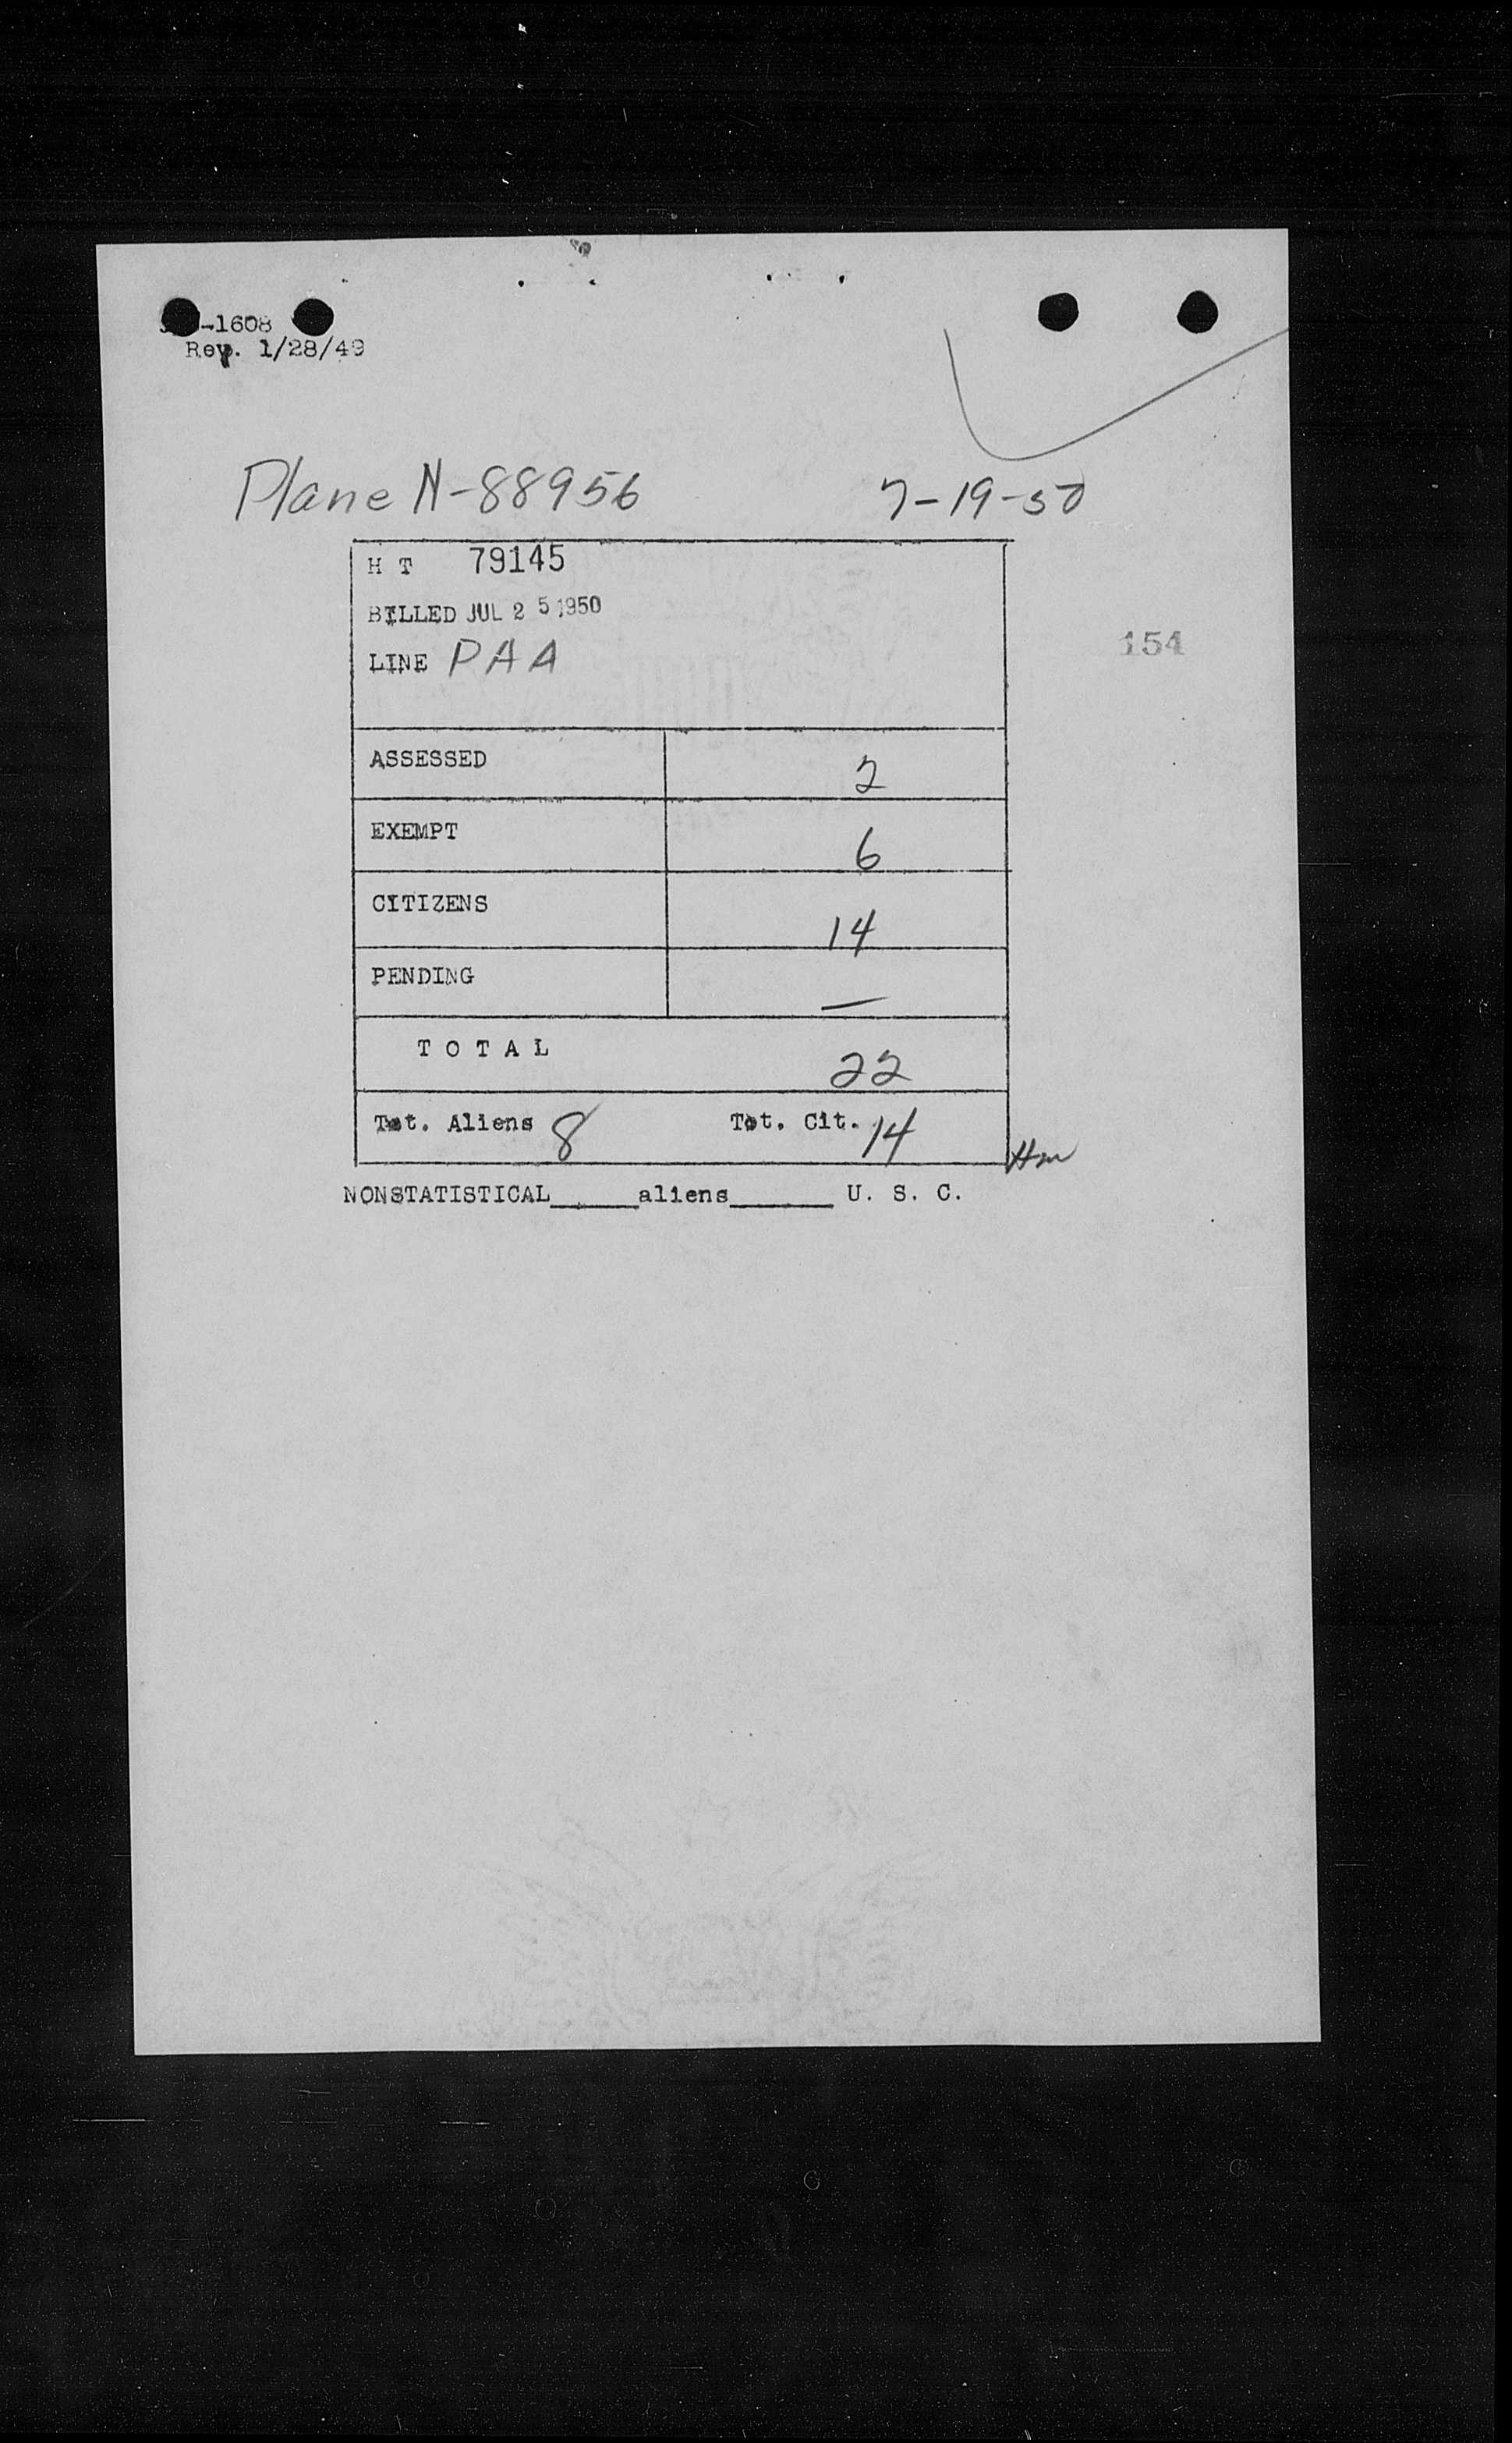 -1608
Rev. 1/28/49
Plane N-88956 7-19-50
H T 79145
BILLED JUL 25 1950
LINE PAA
154
ASSESSED 2
EXEMPT 6
CITIZENS 14
PENDING —
TOTAL 22
Tot. Aliens 8 Tot. Cit. 14
NONSTATISTICAL_____aliens______ U. S. C.